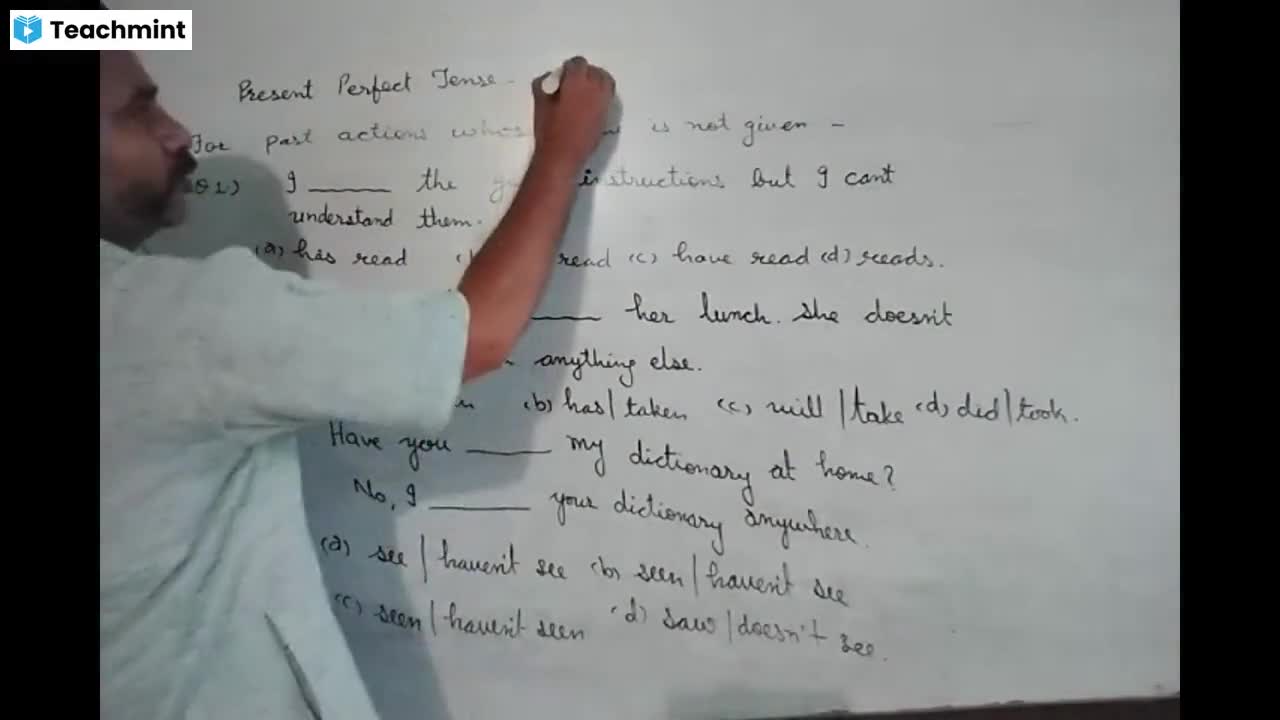 Teachmint
Present Perfect Tense -
For past actions is not given -
Q1) I ______ the instructions but I cant
understand them.
(a) has read read (c) have read (d) reads.
______ her lunch. She doesn't
anything else.
(b) has/taken (c) will/take (d) did/took.
Have you ______ my dictionary at home?
No, I ______ your dictionary anywhere.
(a) see/haven't see (b) seen/haven't see
(c) seen/haven't seen (d) saw/doesn't see.